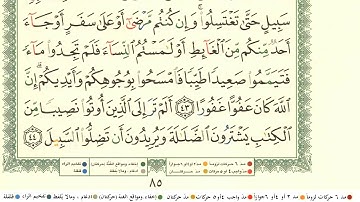 سَبِيلٍ حَتَّىٰ تَغْتَسِلُوا۟ ۚ وَإِن كُنتُم مَّرْضَىٰٓ أَوْ عَلَىٰ سَفَرٍ أَوْ جَآءَ
أَحَدٌ مِّنكُم مِّنَ ٱلْغَآئِطِ أَوْ لَـٰمَسْتُمُ ٱلنِّسَآءَ فَلَمْ تَجِدُوا۟ مَآءً
فَتَيَمَّمُوا۟ صَعِيدًا طَيِّبًا فَٱمْسَحُوا۟ بِوُجُوهِكُمْ وَأَيْدِيكُمْ ۗ إِنَّ
ٱللَّهَ كَانَ عَفُوًّا غَفُورًا ٤٣ أَلَمْ تَرَ إِلَى ٱلَّذِينَ أُوتُوا۟ نَصِيبًا مِّنَ
ٱلْكِتَـٰبِ يَشْتَرُونَ ٱلضَّلَـٰلَةَ وَيُرِيدُونَ أَن تَضِلُّوا۟ ٱلسَّبِيلَ ٤٤
٨٥